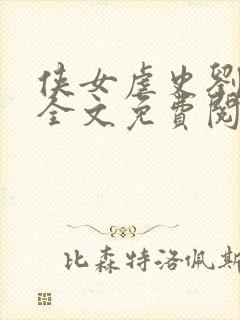 侠女虐史劉
全文免費閱
比森特洛佩斯